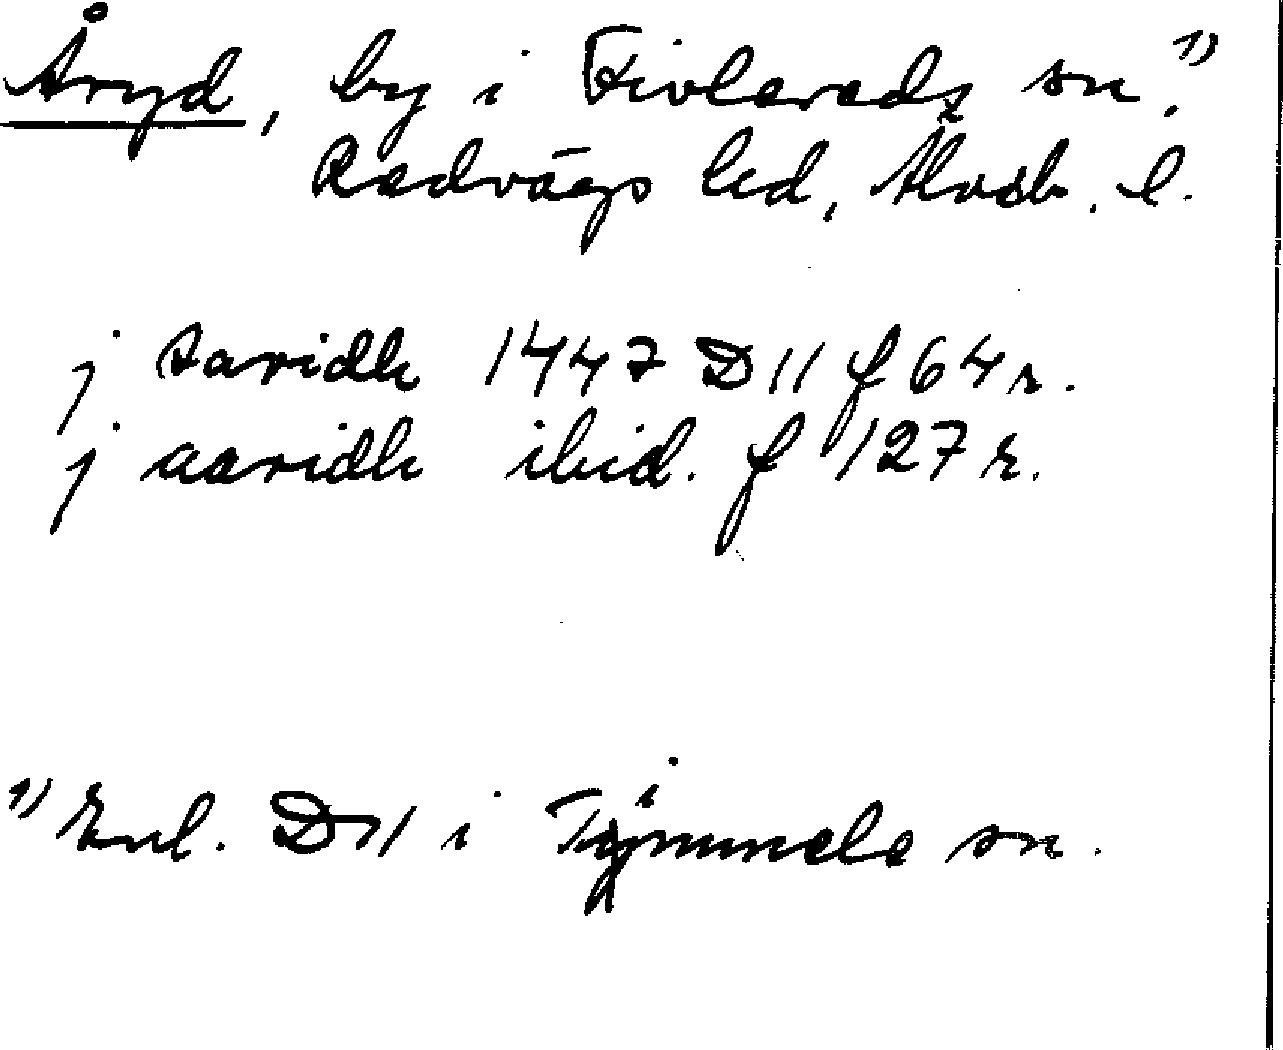 Åryd, by i Fivlereds sn.¹⁾
Redvägs hd, Älvsb. l.
j aaridh 1447 D 11 f 64 r.
j aaridh ibid. f 127 r.
¹⁾ Enl. D 11 i Timmele sn.